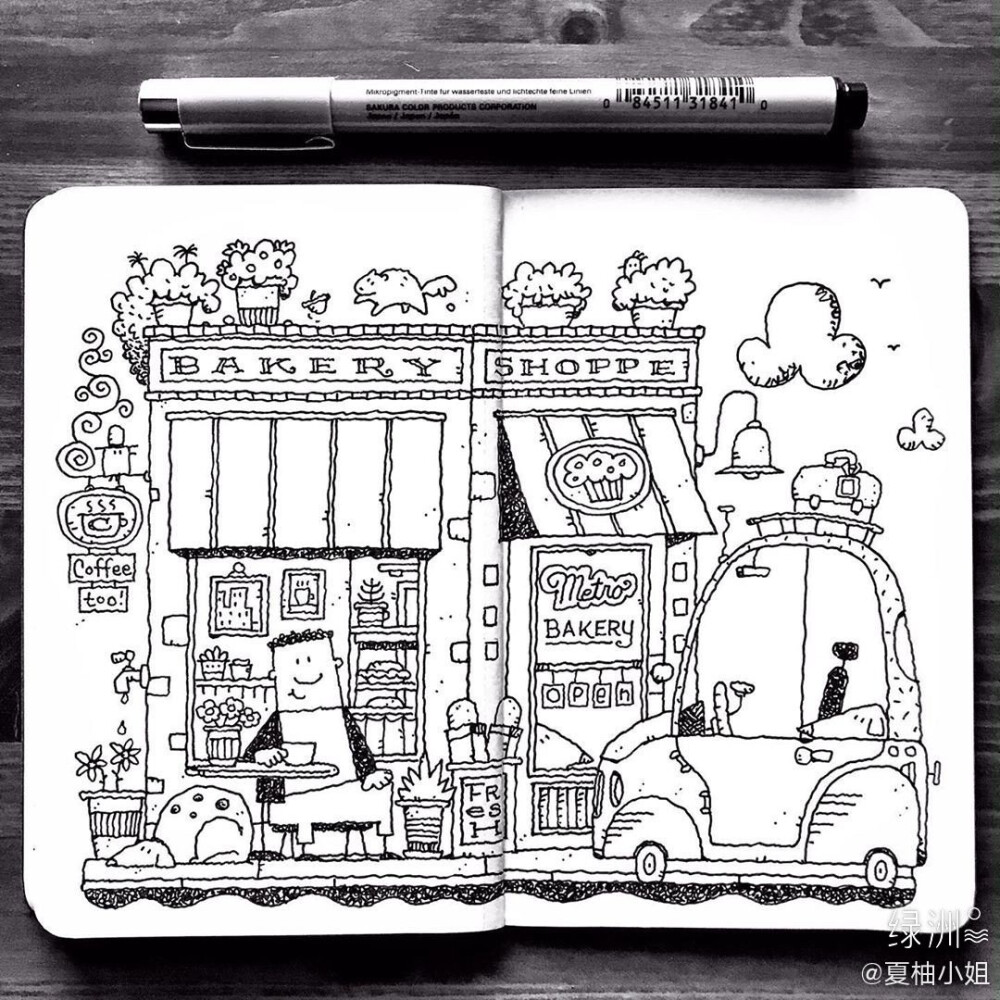 Mikropigment-Tinte für wasserfeste und lichtechte feine Linien
SAKURA COLOR PRODUCTS CORPORATION
Japan / Japon / Japón
0 84511 31841 0
BAKERY SHOPPE
Coffee
too!
Metro
BAKERY
OPEN
FR
eS
H
绿洲
@夏柚小姐